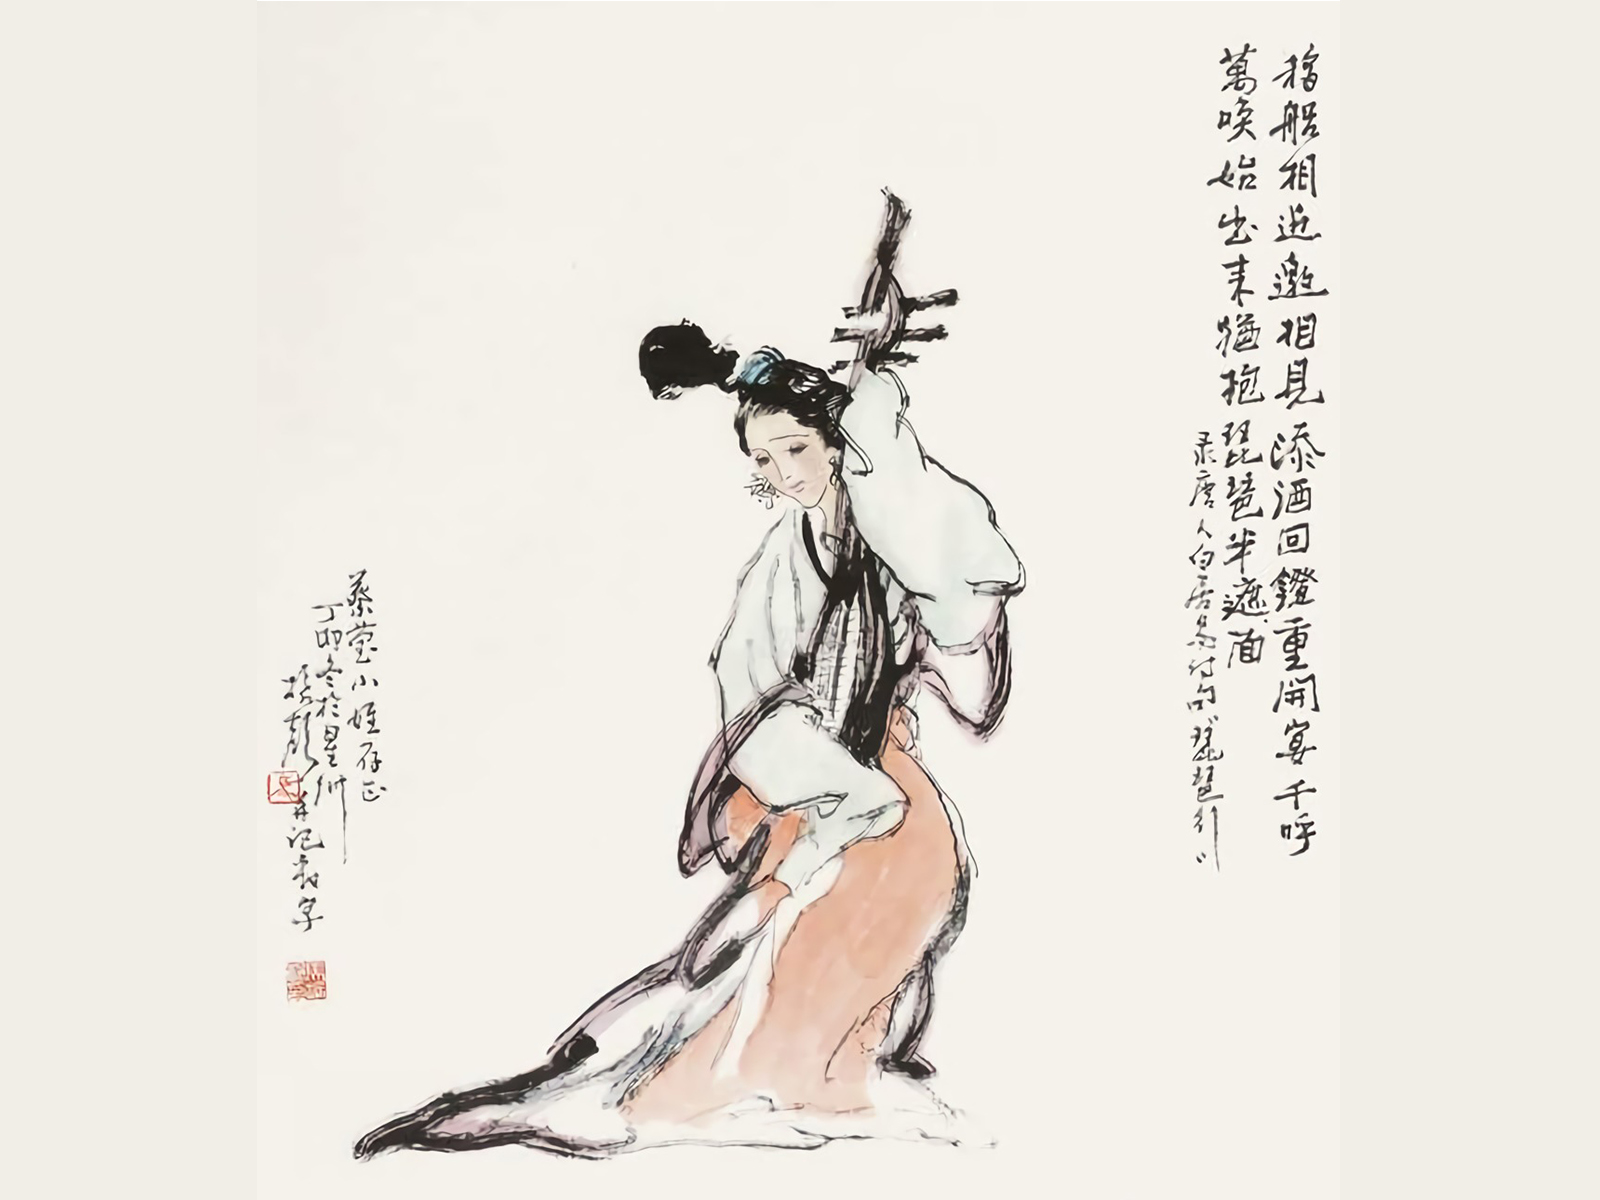 移船相近邀相見添酒回鐙重開宴千呼
萬喚始出来猶抱琵琶半遮面
录唐人白居易诗句琵琶行
蔡莹小姐存正
丁卯冬於星洲
并记数字